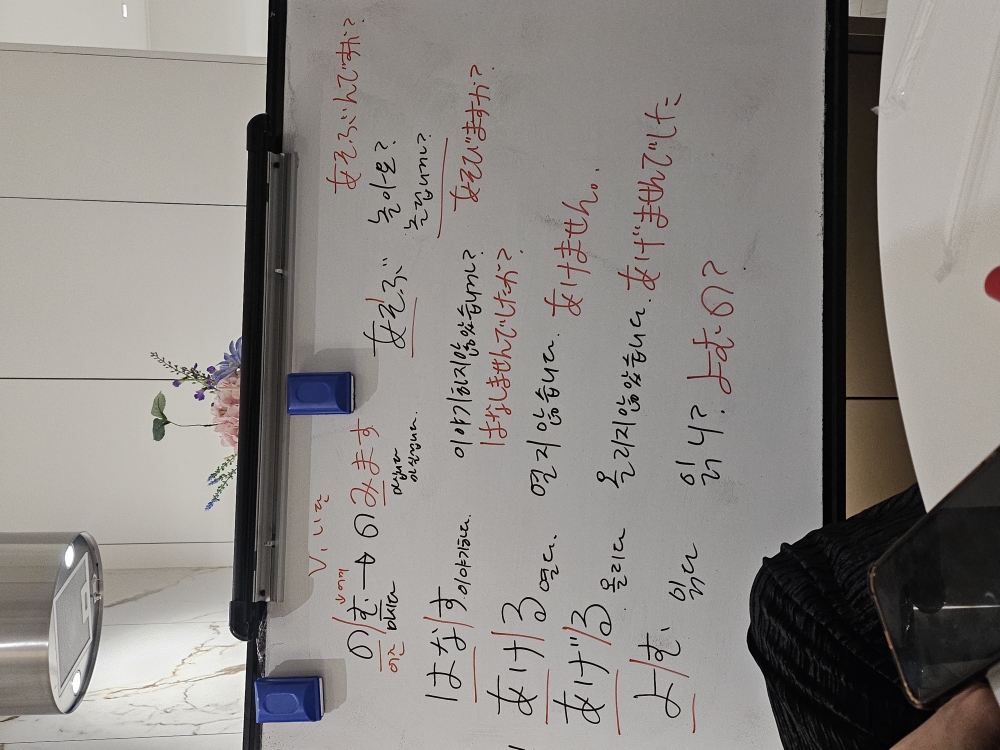 V. 니다
あそぶんですか?
↓어미
の/む → のみます あそぶ 놀아요?
어간 마시다 마십니다
あそびますか?
はな/す 이야기하다. 이야기하지않았습니까?
はなしませんでしたか?
あけ/る 열다. 열지 않습니다. あけません。
あげ/る 올리다 올리지않았습니다. あげませんでした
よ/む 읽다 읽니? よむの?